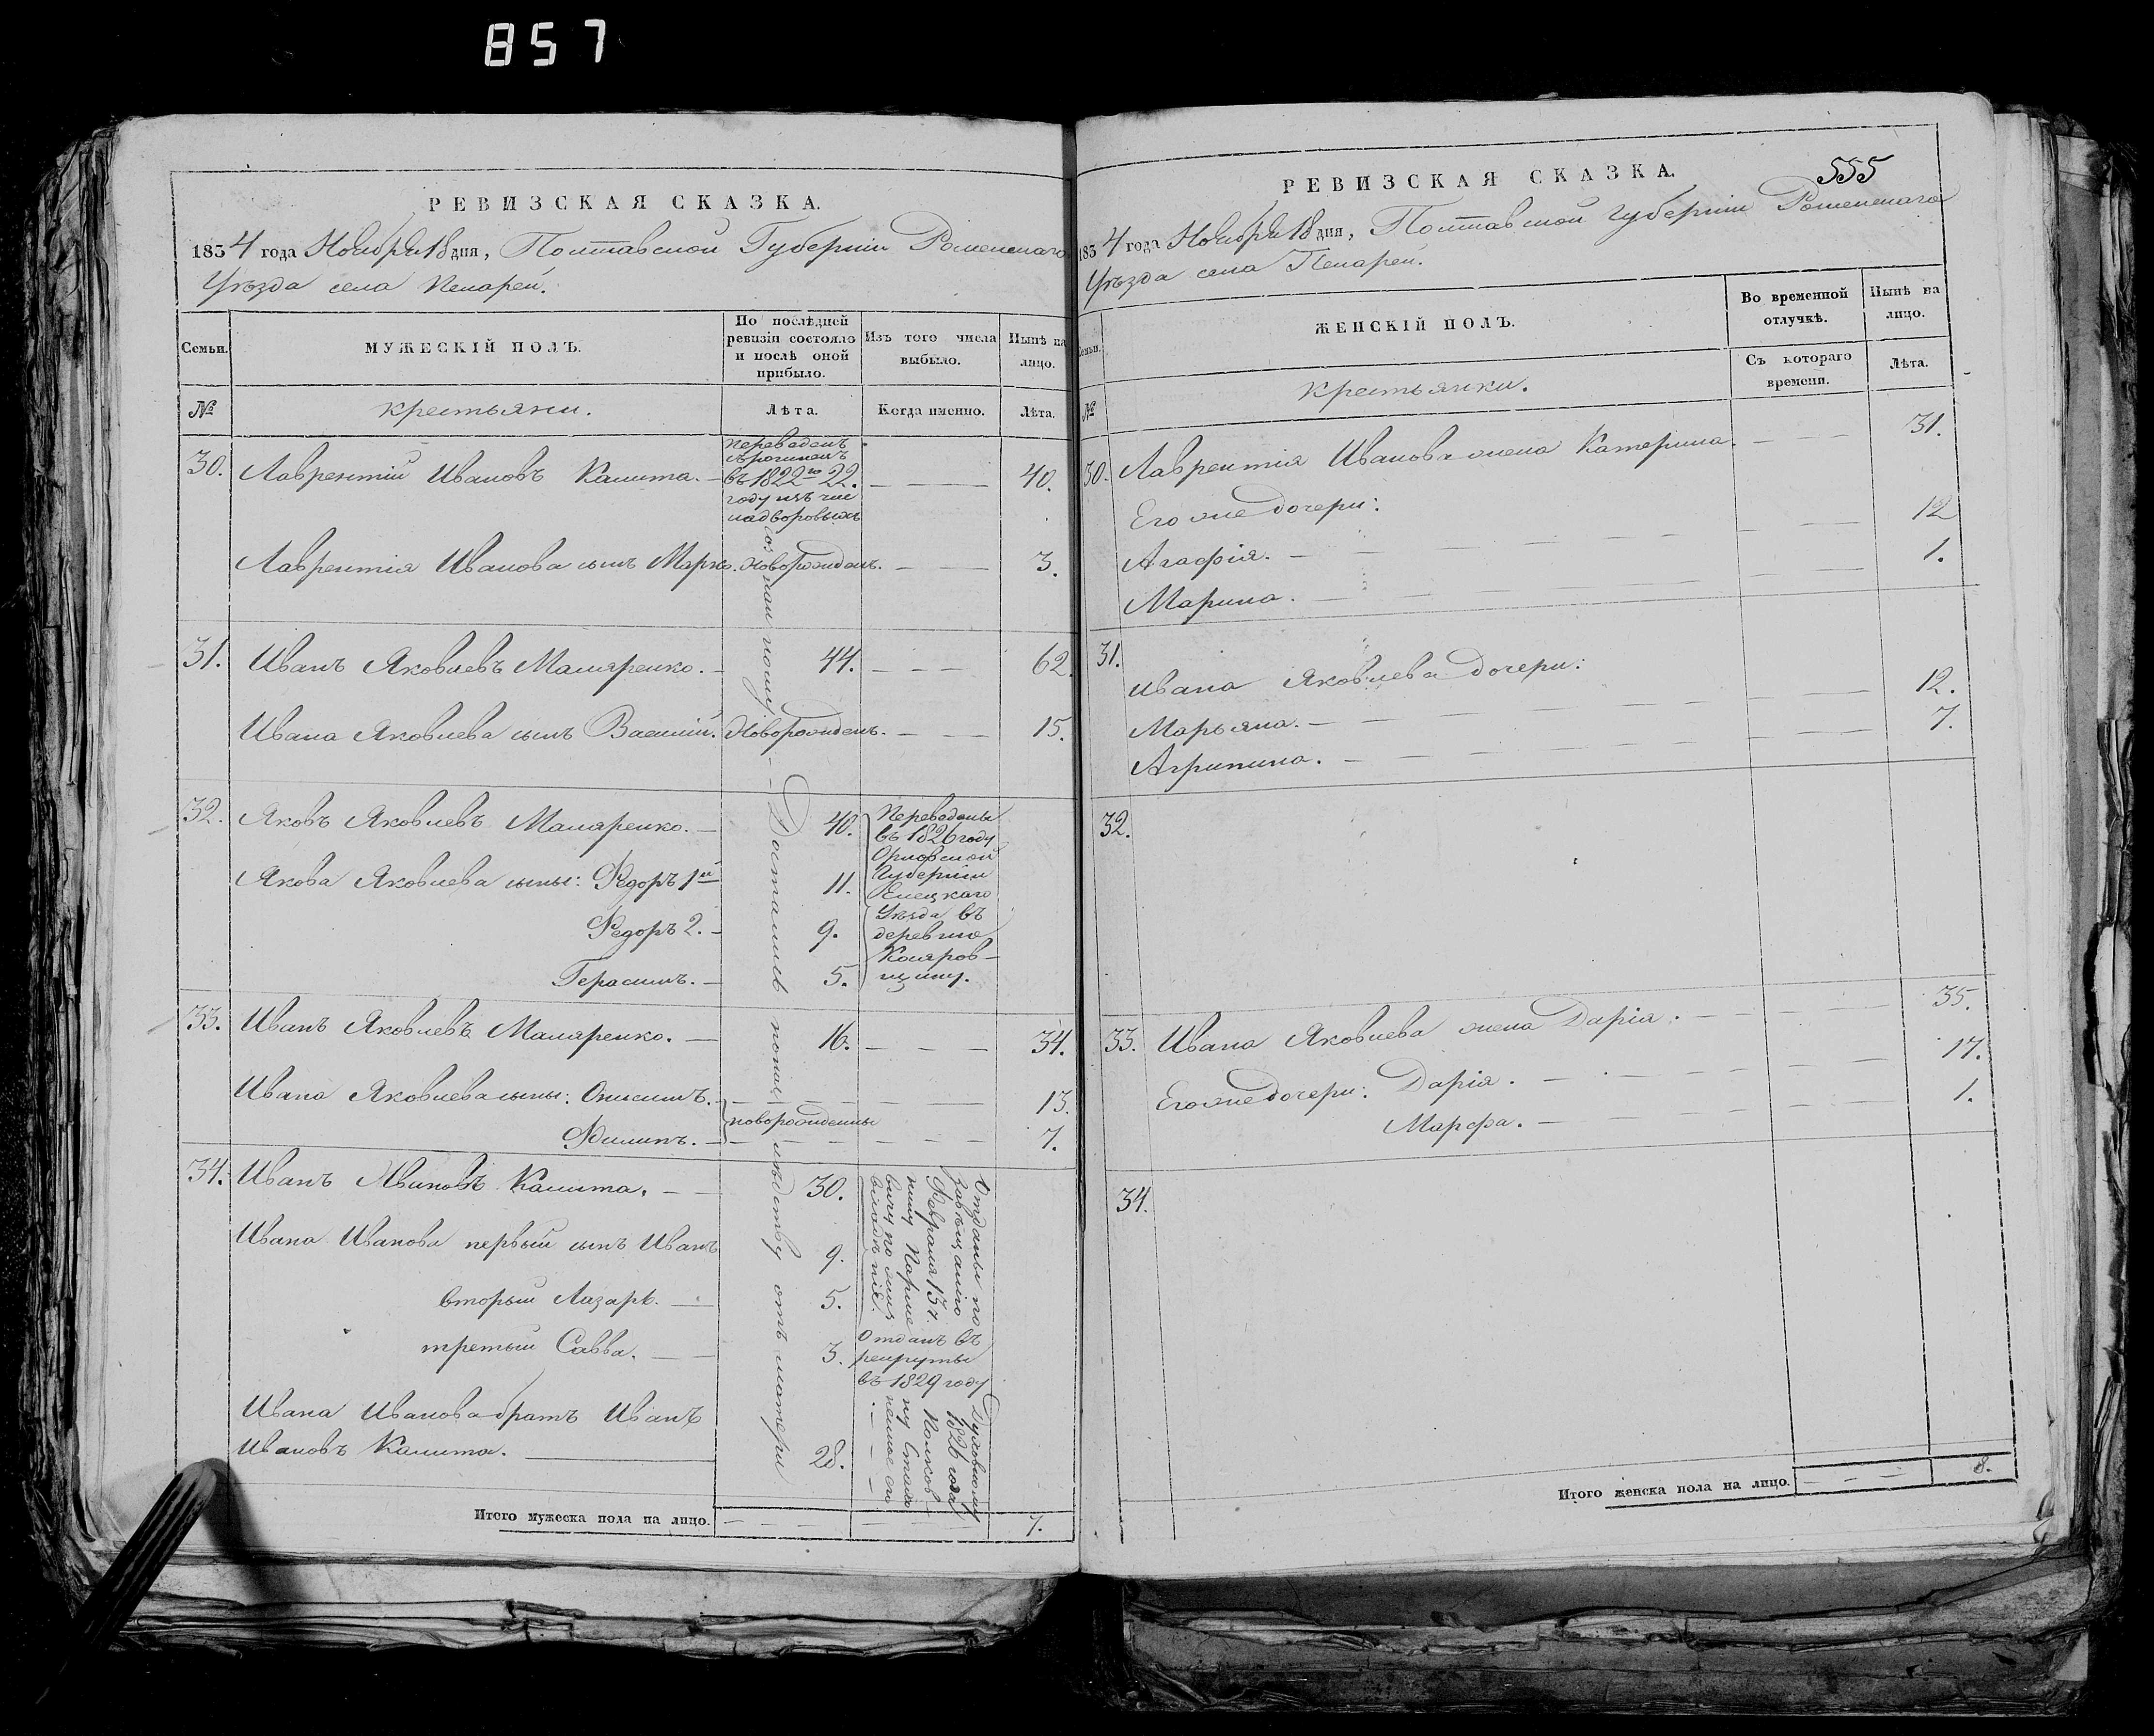 857
РЕВИЗСКАЯ СКАЗКА.
1834 года Ноября 18 дня, Полтавской Губерніи Роменскаго
Уѣзда села Пекарей.
Семьи.
МУЖЕСКІЙ ПОЛЪ.
По послѣдней ревизіи состояло и послѣ оной прибыло.
Изъ того числа выбыло.
Нынѣ на лицо.
№
крестьяни.
Лѣта.
Когда именно.
Лѣта.
30. Лаврентій Ивановъ Калита. — 22. — — — 40.
Переведенъ
въ 1822го
году изъ
дворовыхъ
Лаврентія Иванова сынъ Марко. новорожденъ. — — — 3.
31. Иванъ Яковлевъ Маляренко. — 44. — — — 62.
Ивана Яковлева сынъ Василій. Новорожденъ. — — — 15.
32. Яковъ Яковлевъ Маляренко. — 40.
Якова Яковлева сыны: Федоръ 1й 11.
Федоръ 2. — 9.
Герасимъ. — 5.
Переведены
въ 1826 году
Орловской
Губерніи
Елецкаго
Уѣзда въ
деревню
33. Иванъ Яковлевъ Маляренко. — 16. — — — 34.
Ивана Яковлева сыны: Онисимъ. — — — 13.
новорожденны
Филипъ. — — — 7.
34. Иванъ Ивановъ Калита. — — 30.
Ивана Иванова первый сынъ Иванъ 9.
вторый Лазарь. — 5.
третый Савва. — — 3.
Отданъ въ
рекруты
въ 1829 году
Ивана Иванова братъ Иванъ
Ивановъ Калита. — 28.
Отданы по
Духовному
завѣщанію
1826 года
Февраля 13
Достались
отъ матери
Итого мужеска пола на лицо. — — — — — 7.
555
РЕВИЗСКАЯ СКАЗКА.
1834 года Ноября 18 дня, Полтавской Губерніи Роменскаго
Уѣзда села Пекарей.
Семьи.
ЖЕНСКІЙ ПОЛЪ.
Во временной отлучкѣ.
Нынѣ на лицо.
Съ котораго времени.
Лѣта.
№
крестьянки.
30. Лаврентія Иванова жена Катерина. — — — 31.
Его же дочери:
Агафія. — — — 12
Марина. — — — 1.
31.
Ивана Яковлева дочери:
Марьяна. — — — 12.
Агрипина. — — — 7.
32.
33. Ивана Яковлева жена Дарія. — — — 35.
Его же дочери: Дарія. — — — 17.
Марфа. — — — 1.
34.
Итого женска пола на лицо. — — — 8.